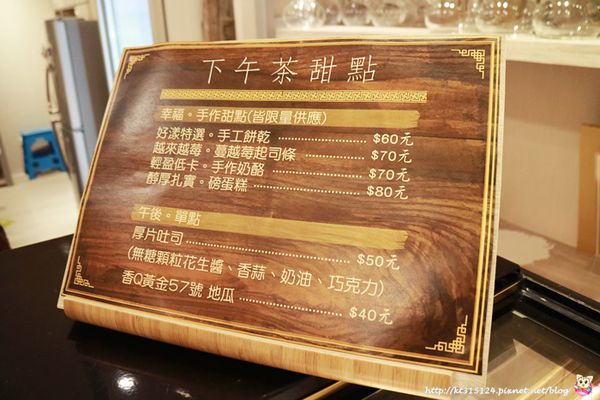 下午茶甜點
幸福。手作甜點(皆限量供應)
好漾特選。手工餅乾 ........................ $60元
越來越莓。蔓越莓起司條 ................ $70元
輕盈低卡。手作奶酪 ........................ $70元
醇厚扎實。磅蛋糕 ............................ $80元
午後。單點
厚片吐司 ........................................ $50元
(無糖顆粒花生醬、香蒜、奶油、巧克力)
香Q黃金57號 地瓜 ............................ $40元
http://kt315124.pixnet.net/blog